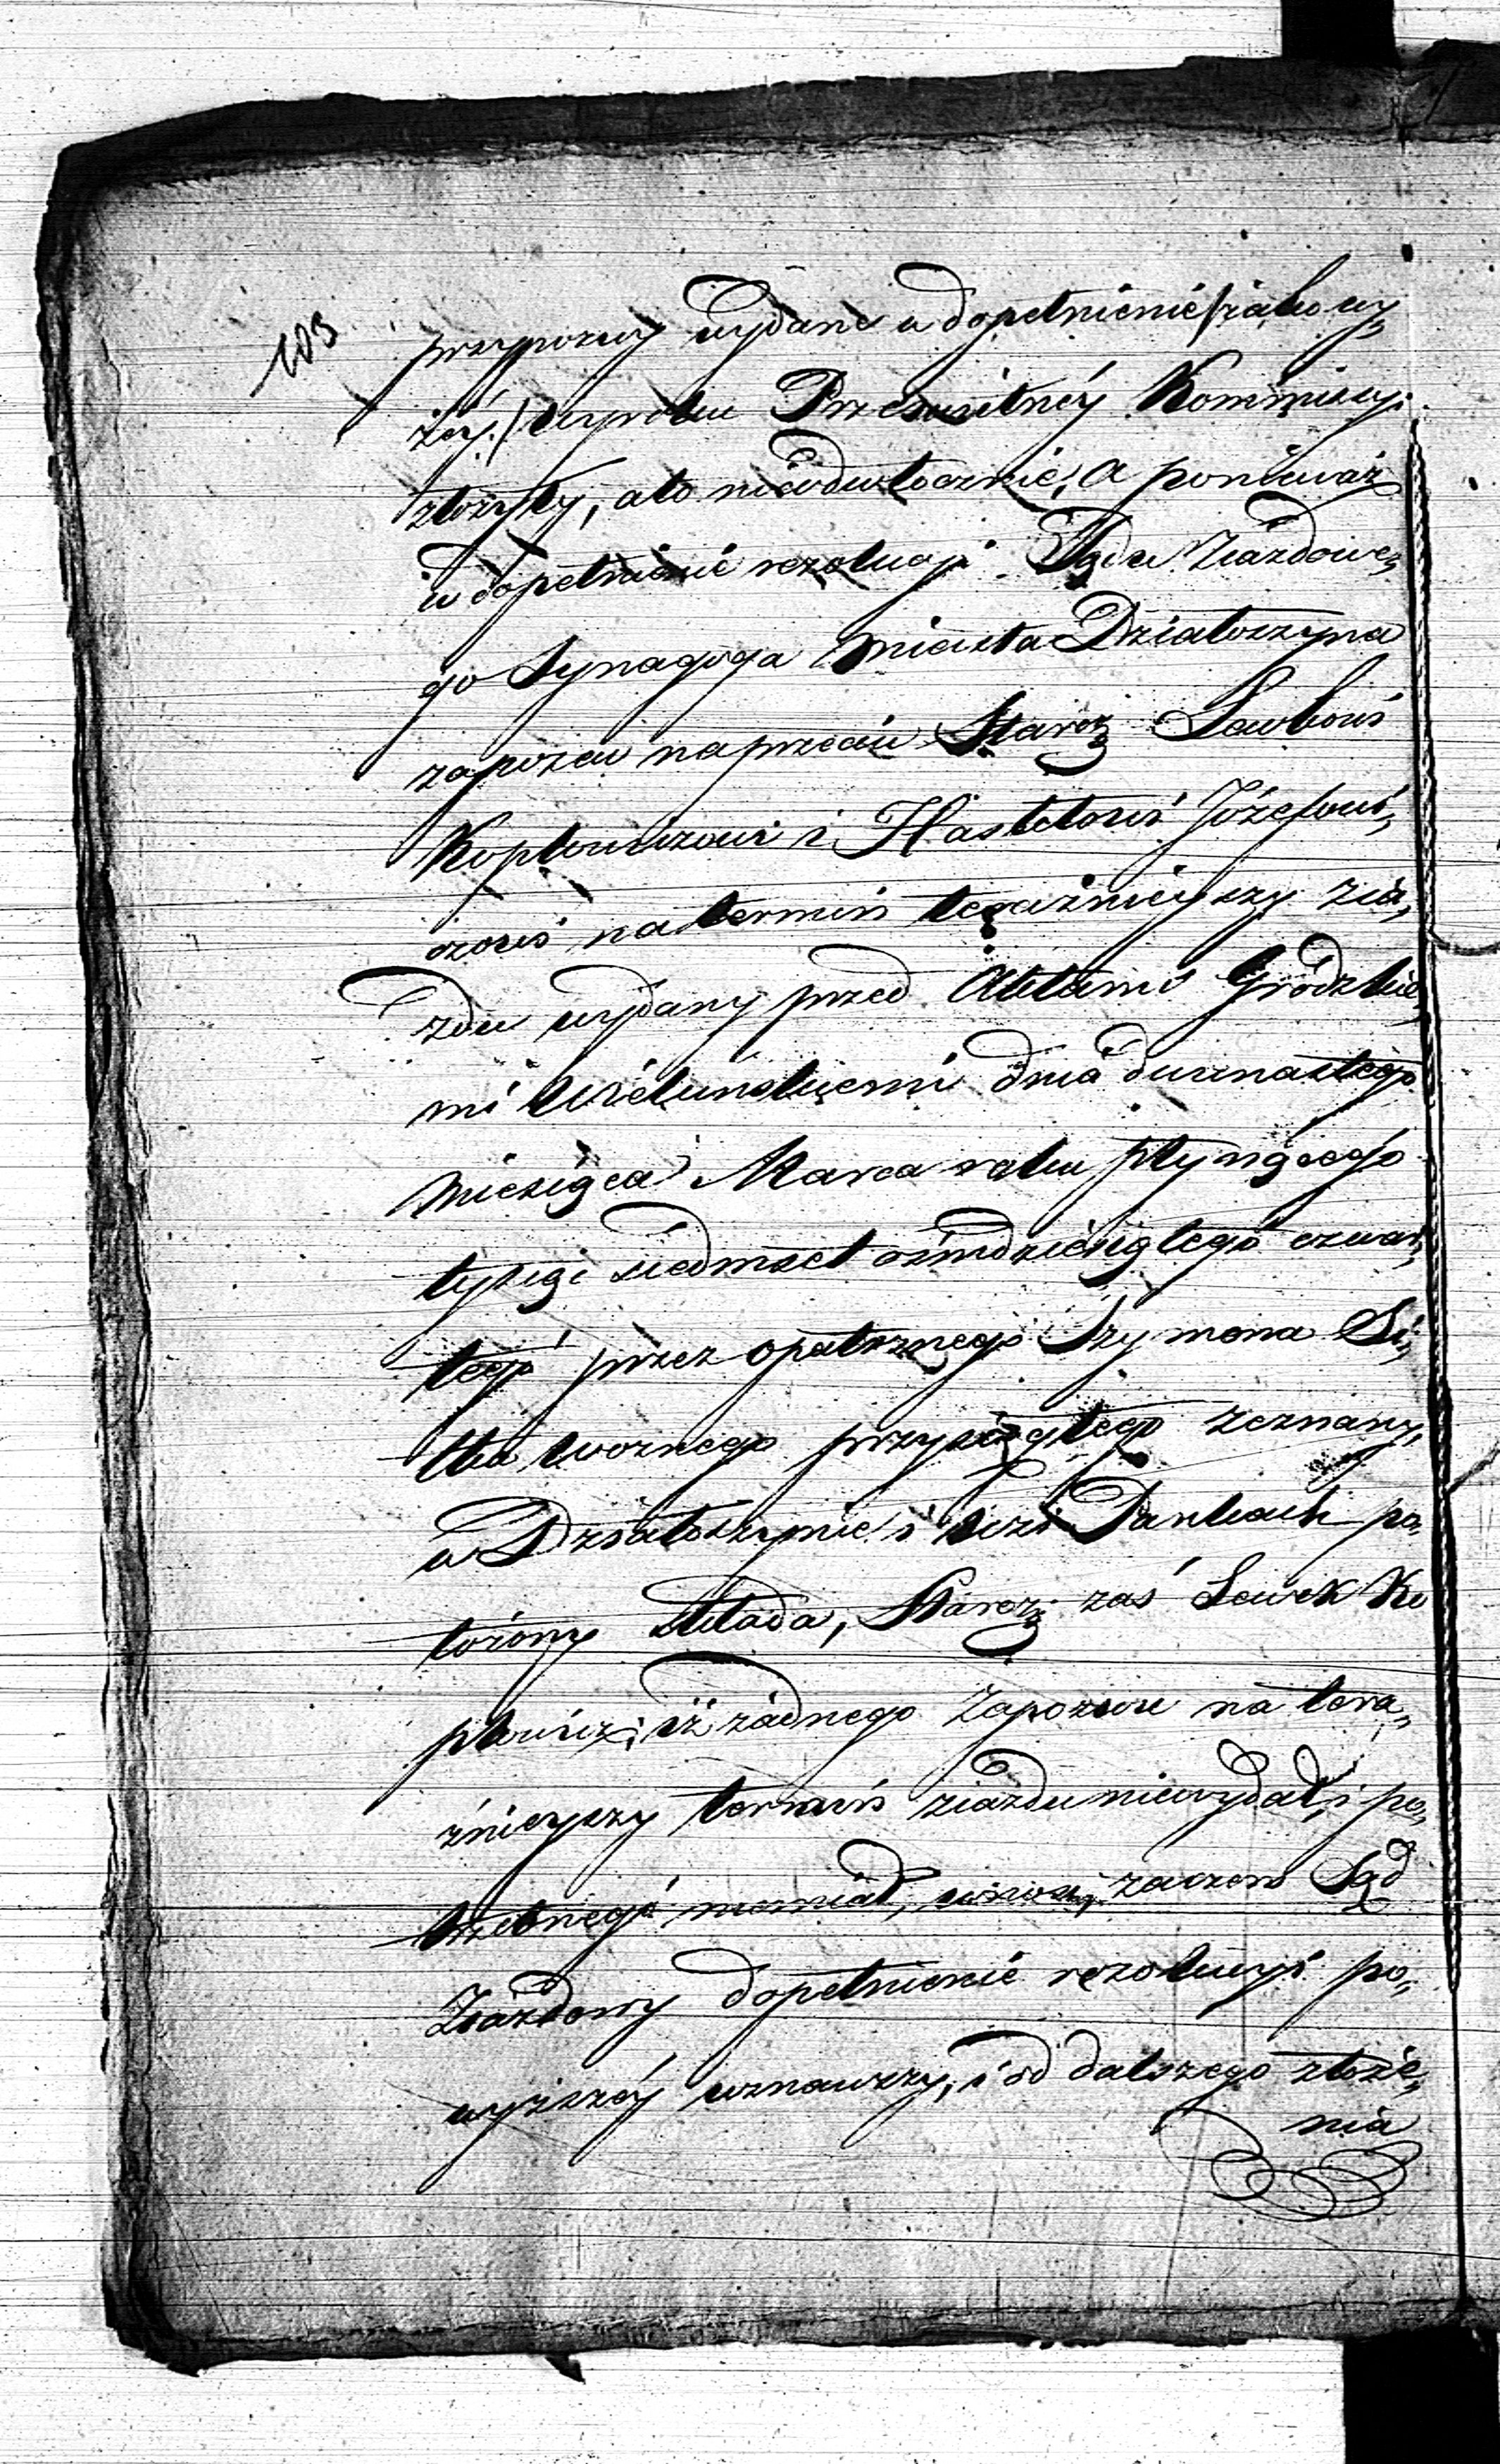 103
przypozwy wydane w dopełnienie jako wy
żéy wyroku Prześwitnéy Kommissyi
złożyły, ato nieodwłocznie, a ponieważ
w dopełnienie rezolucyi Sądu Ziazdowe„
go Synagoga miasta Działoszyna
zapozew naprzeciw Starsz: Lewkowi
Koplowiczowi i Hasklowi Józefowi„
czowi na termin teraźnieyszy zia„
zdu wydany przed Aktami Grodzkie„
mi Wieluńskiemi dnia dwunastego
miesiąca Marca roku płynącego
tysiąc siedmset ośmdziesiątego czwar„
tego przez opatrznego Szymona Si„
tka woznego przysięgłego zeznany,
w Działoszynie i wsi Parkach po„
łożony składa, Starsz: zaś Lewek Ko
plowicz, iż żadnego Zapozwu na tera„
źnieyszy termin ziazdu niewydał, i po„
trzebnego niemiał, wnosi, zaczem Sąd
Ziazdowy dopełnienie rezolucyi po„
wyższéy uznawszy, i od dalszego złoże„
nia